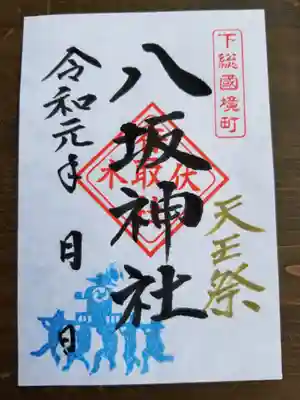 下総國境町
八坂神社
天王祭
令和元年 日 日
水取伏